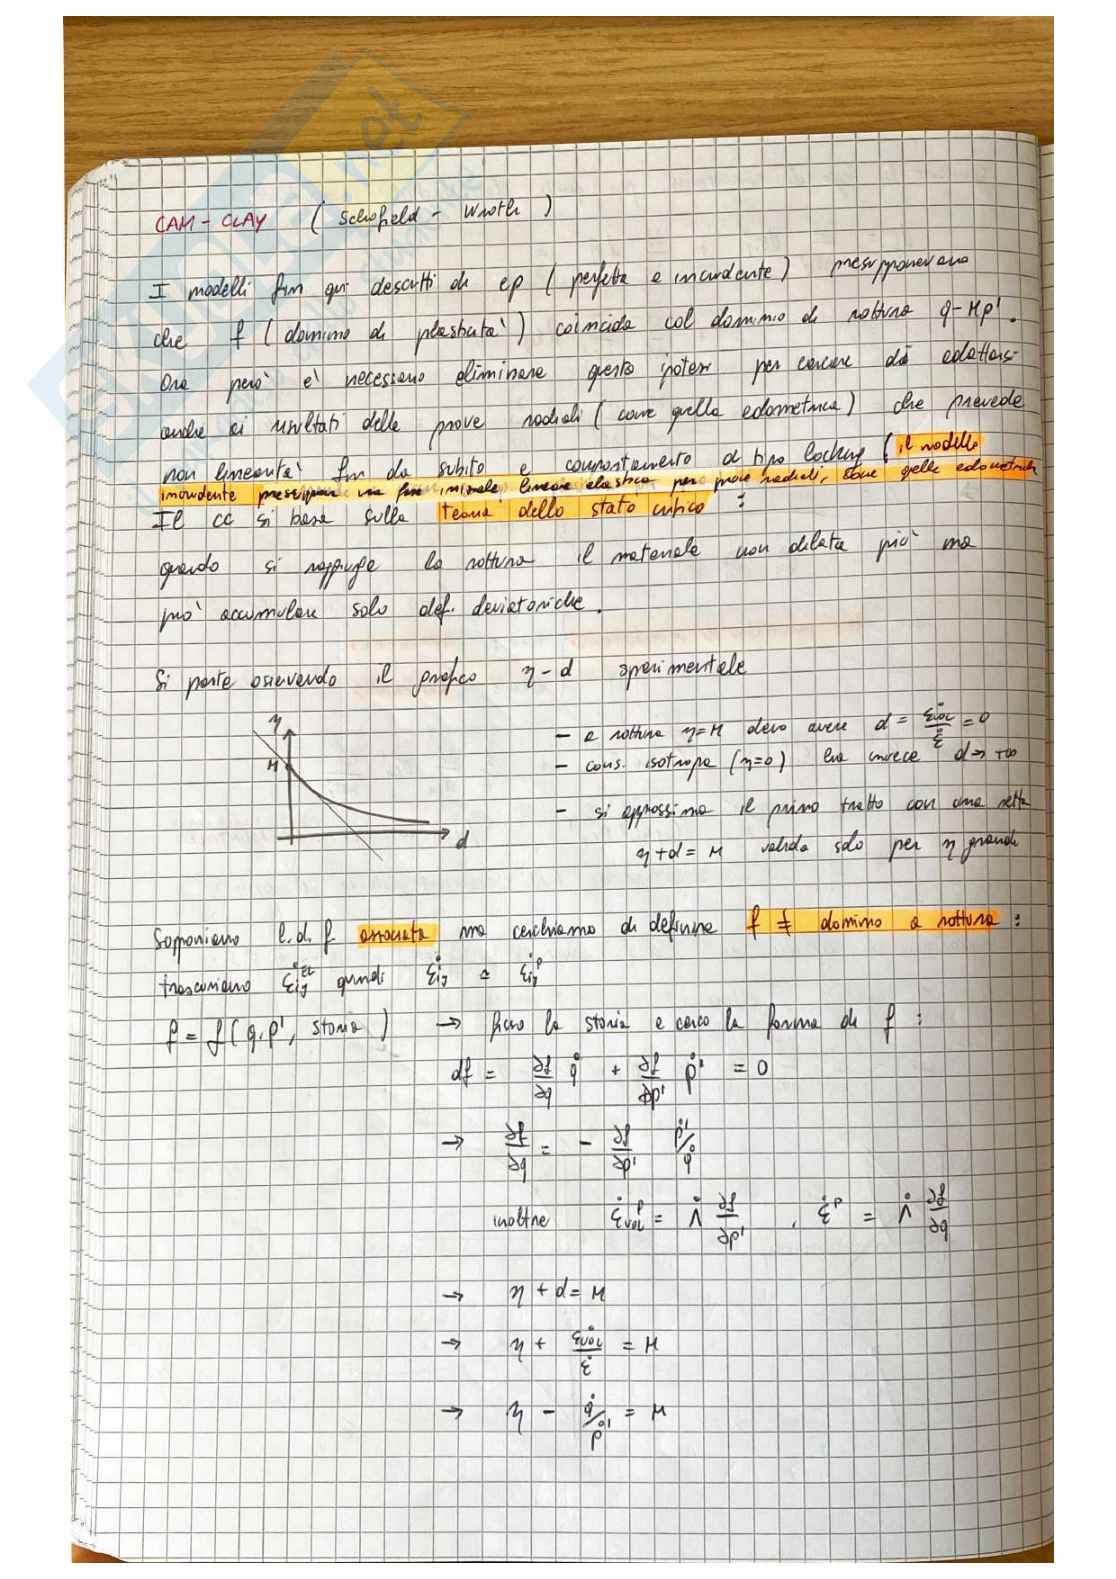 CAM-CLAY ( Schofield - Wroth )
I modelli fin qui descritti di ep ( perfetta e incrudente ) presupponevano
che f ( dominio di plasticità ) coincida col dominio di rottura q-Mp'.
Ora però è necessario eliminare questa ipotesi per cercare di adattarsi
anche ai risultati delle prove radiali ( come quella edometrica ) che prevede
non linearità fin da subito e comportamento di tipo locking ( il modello
incrudente presuppone una fase iniziale lineare elastica per prove radiali, come quelle edometriche
Il cc si basa sulla teoria dello stato critico :
quando si raggiunge la rottura il materiale non dilata più ma
può accumulare solo def. deviatoriche.
Si parte osservando il grafico η-d sperimentale
η
M
d
- a rottura η=M devo avere d = ε̇vol/ε̇ = 0
- cons. isotropa (η=0) ho invece d→+∞
- si approssima il primo tratto con una retta
η+d=M valida solo per η grandi
Supponiamo l.d.f. associata ma cerchiamo di definire f ≠ dominio a rottura :
trascuriamo ε̇ij^EL quindi ε̇ij = ε̇ij^P
f = f ( q, p', storia ) → fisso la storia e cerco la forma di f :
df = ∂f/∂q q̇ + ∂f/∂p' ṗ' = 0
→ ∂f/∂q = - ∂f/∂p' ṗ'/q̇
inoltre ε̇vol^P = Λ̇ ∂f/∂p' , ε̇^P = Λ̇ ∂f/∂q
→ η + d = M
→ η + ε̇vol/ε̇ = M
→ η - q̇/ṗ' = M